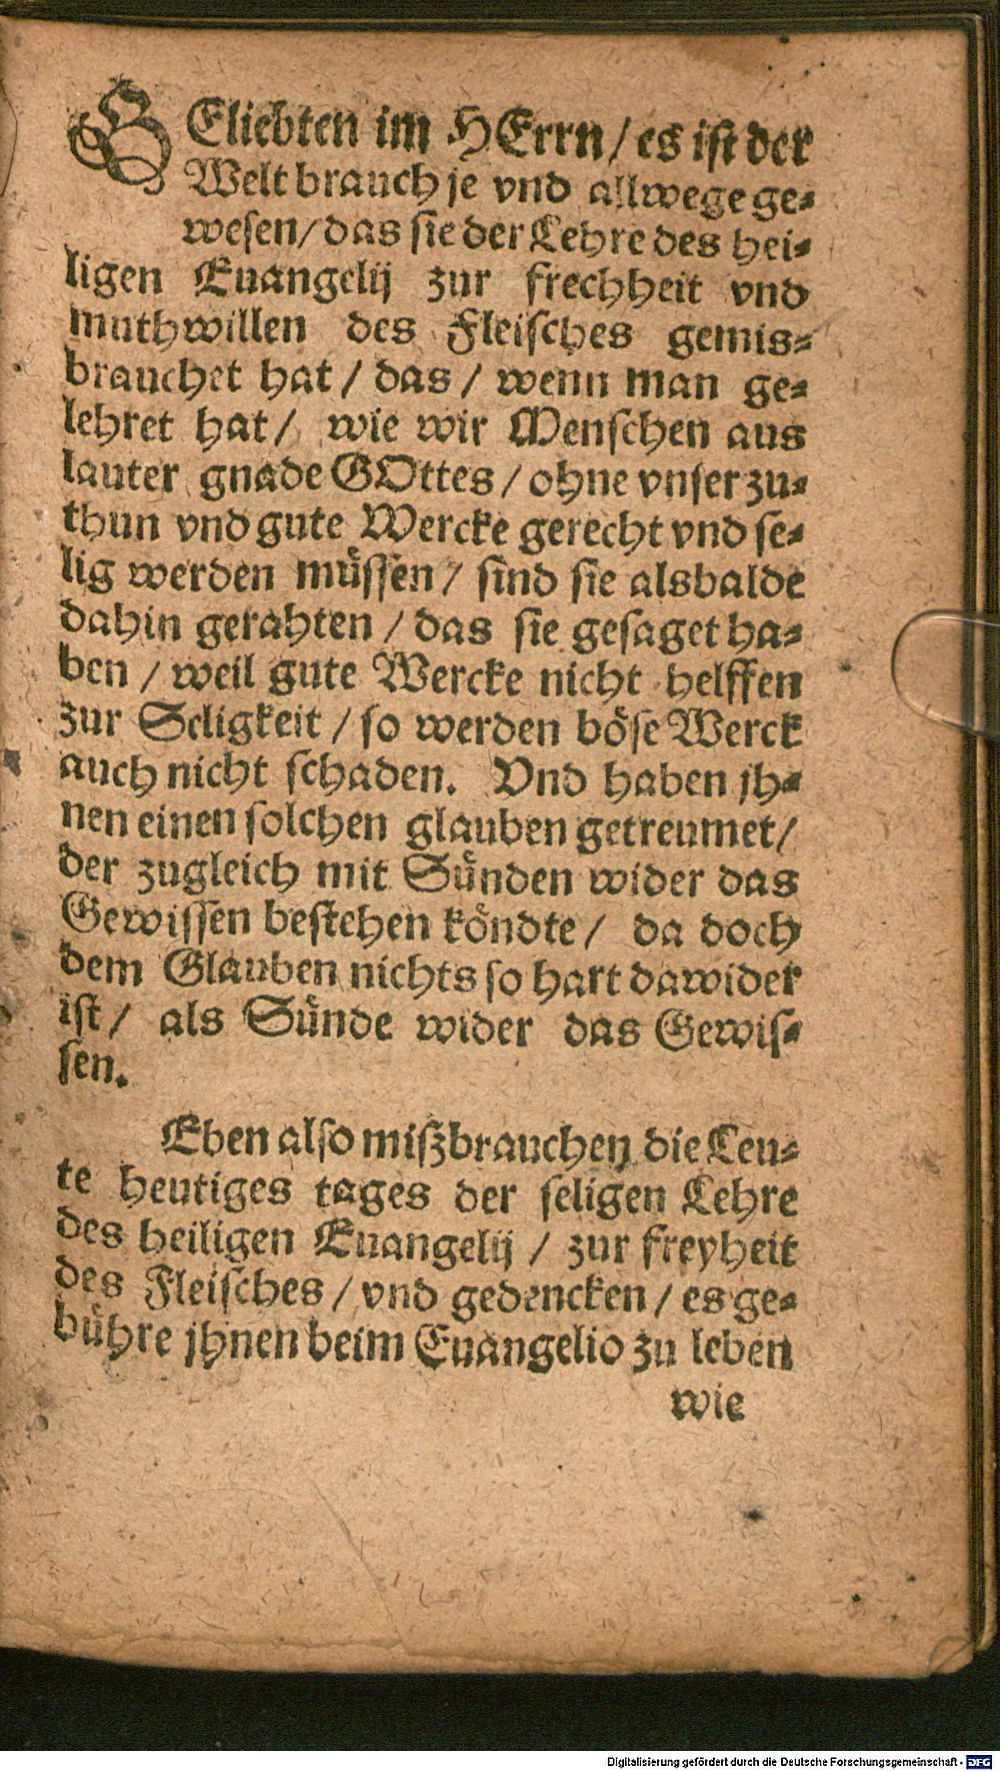 GEliebten im HErrn / es ist der
Welt brauch je vnd allwege ge-
wesen / das sie der Lehre des hei-
ligen Euangelij zur frechheit vnd
muthwillen des Fleisches gemis-
brauchet hat / das / wenn man ge-
lehret hat / wie wir Menschen aus
lauter gnade GOttes / ohne vnser zu-
thun vnd gute Wercke gerecht vnd se-
lig werden müssen / sind sie alsbalde
dahin gerahten / das sie gesaget ha-
ben / weil gute Wercke nicht helffen
zur Seligkeit / so werden böse Werck
auch nicht schaden. Vnd haben jh-
nen einen solchen glauben getreumet /
der zugleich mit Sünden wider das
Gewissen bestehen köndte / da doch
dem Glauben nichts so hart dawider
ist / als Sünde wider das Gewis-
sen.
Eben also mißbrauchen die Leu-
te heutiges tages der seligen Lehre
des heiligen Euangelij / zur freyheit
des Fleisches / vnd gedencken / es ge-
bühre jhnen beim Euangelio zu leben
wie
Digitalisierung gefördert durch die Deutsche Forschungsgemeinschaft - DFG